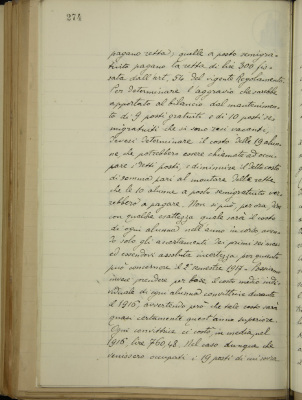 274
pagano retta; quelle a posto semigra-
tuito pagano la retta di lire 300 fis-
sata dall'art. 54 del vigente Regolamento.
Per determinare l'aggravio che sarebbe
apportato al bilancio dal mantenimen-
to di 9 posti gratuiti e di 10 posti se-
migratuiti che si sono resi vacanti
devesi determinare il costo delle 19 alun-
ne, che potrebbero essere chiamate ad occu-
pare i detti posti, e diminuire il detto costo
di somma pari al montare della retta
che le 10 alunne a posto semigratuito ver-
rebbero a pagare. Non si può, per ora, dire
con qualche esattezza quale sarà il costo
di ogni alunna nell'anno in corso, aven-
do solo gli accertamenti dei primi sei mesi
ed essendovi assoluta incertezza, per quanto
può concernere il 2° semestre 1917. Possiamo
invece prendere per base il costo medio indi-
viduale di ogni alunna convittrice durante
il 1916, avvertendo però che tale costo sarà
quasi certamente quest'anno superiore.
Ogni convittrice ci costò, in media, nel
1916, lire 760,48. Nel caso dunque che
venissero occupati i 19 posti di cui sopra